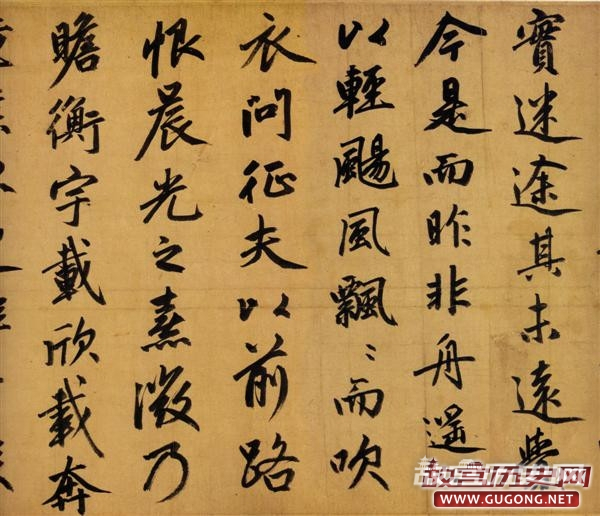 實迷途其未遠覺
今是而昨非舟遙
以輕颺風飄〻而吹
衣問征夫以前路
恨晨光之熹微乃
瞻衡宇載欣載奔
故宫历史网
WWW.GUGONG.NET